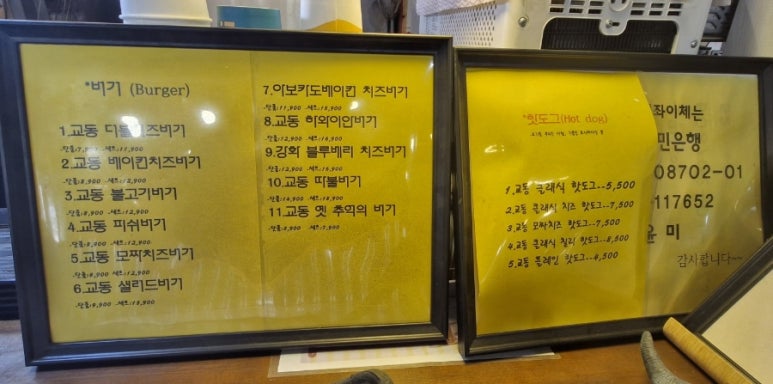 *버기 (Burger)
1.교동 더블치즈버기
단품:7,900 세트:11,900
2.교동 베이컨치즈버기
단품:8,900 세트:12,900
3.교동 불고기버기
단품:8,900 세트:12,900
4.교동 피쉬버기
단품:8,900 세트:12,900
5.교동 모짜치즈버기
단품:8,900 세트:12,900
6.교동 샐러드버기
단품:9,900 세트:13,900
7.아보카도베이컨 치즈버기
단품:11,900 세트:15,900
8.교동 하와이안버기
단품:12,900 세트:16,900
9.강화 블루베리 치즈버기
단품:12,900 세트:15,900
10.교동 따불버기
단품:14,900 세트:18,900
11.교동 옛 추억의 버기
단품:3,900 세트:7,900
*핫도그(Hot dog)
1.교동 클래식 핫도그--5,500
2.교동 클래식 치즈 핫도그--7,500
3.교동 모짜치즈 핫도그--7,500
4.교동 클래식 칠리 핫도그--8,500
5.교동 플레인 핫도그--4,500
좌이체는
민은행
08702-01
117652
윤 미
감사합니다~~